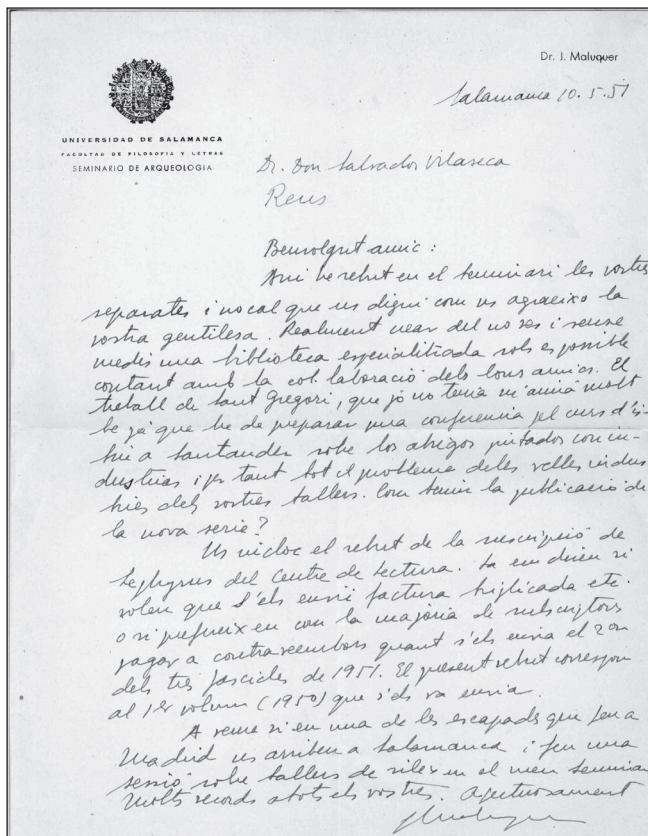 Dr. J. Maluquer
Salamanca 10.5.51
UNIVERSIDAD DE SALAMANCA
FACULTAD DE FILOSOFIA Y LETRAS
SEMINARIO DE ARQUEOLOGIA
Dr. Don Salvador Vilaseca
Reus
Benvolgut amic:
Avui he rebut en el Seminari les vostres
separates i no cal que us digui com us agraeixo la
vostra gentilesa. Realment crear del no res i sense
medis una biblioteca especialitzada sols es possible
contant amb la col.laboració dels bons amics. El
treball de Sant Gregori, que jo no tenia m'anirà molt
be ja que he de preparar una conferencia pel curs d'es-
tiu a Santander sobre los abrigos pintados con in-
dustrias i per tant tot el problema de les velles indus
tries dels vostres tallers. Com tenim la publicació de
la nova serie?
Us incloc el rebut de la suscripció de
Zephyrus del Centre de Lectura. Ja em direu si
volen que s'els envii factura triplicada etc.
o si prefereixen com la majoria de subscriptors
pagar a contrareembors quant s'els envia el 2on
dels tres fascicles de 1951. El present rebut correspon
al 1er volum (1950) que s'els va enviar.
A veure si en una de les escapades que feu a
Madrid us arribeu a Salamanca i feu una
sessió sobre tallers de silex en el meu Seminari
Molts records a tots els vostres. Afectuosament